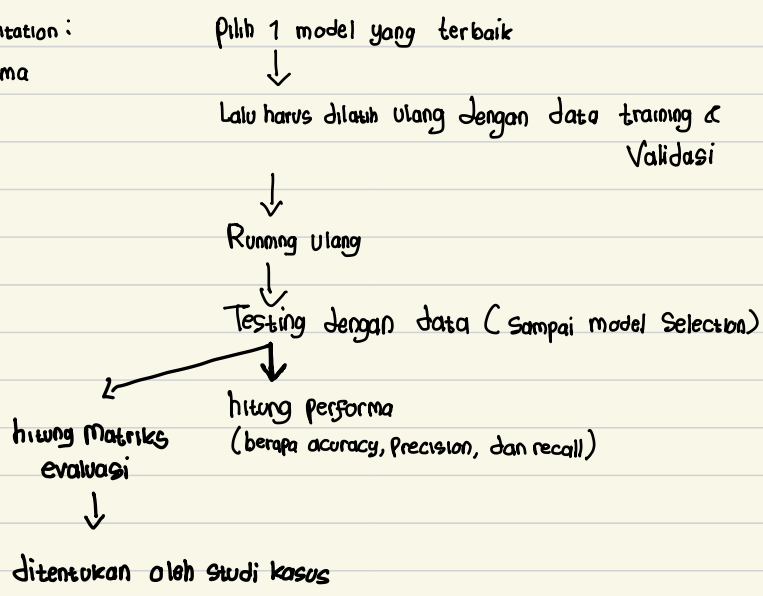 tation :
ma
Pilih 1 model yang terbaik
Lalu harus dilatih ulang dengan data training &
Validasi
Running ulang
Testing dengan data ( sampai model Selection)
hitung performa
(berapa acuracy, Precision, dan recall)
hitung Matriks
evaluasi
ditentukan oleh studi kasus